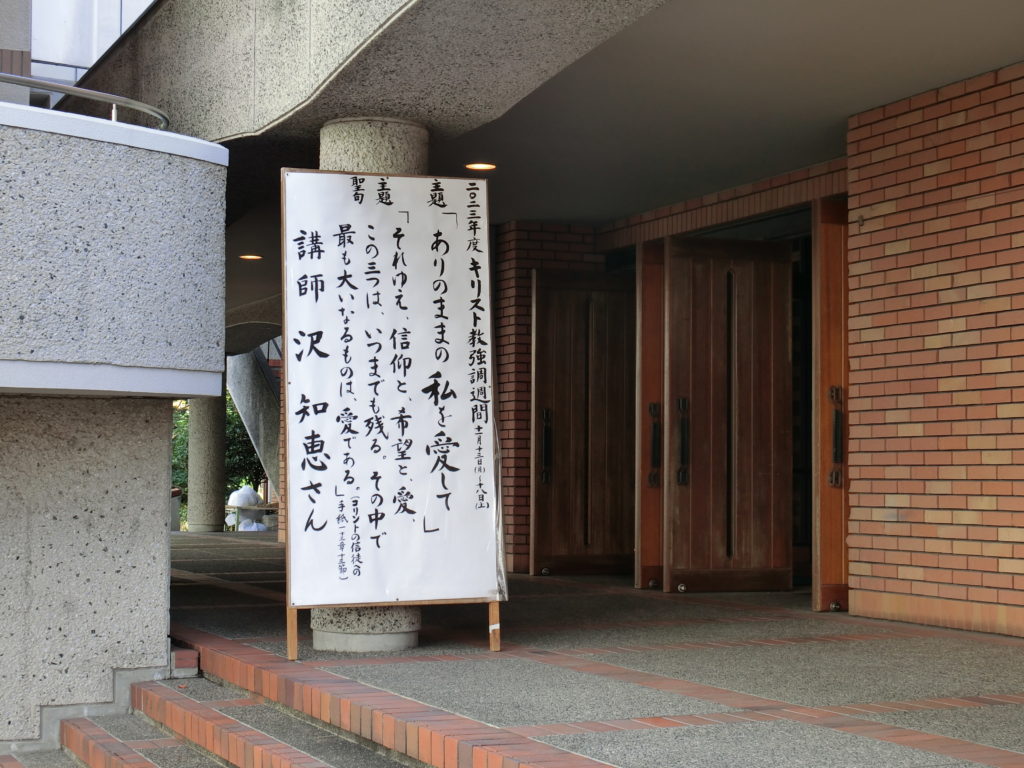 二〇二三年度 キリスト教強調週間 十一月十三日(月)〜十八日(土)
主題「ありのままの私を愛して」
主題聖句「それゆえ、信仰と、希望と、愛、
この三つは、いつまでも残る。その中で
最も大いなるものは、愛である。」
(コリントの信徒への
手紙一十三章十三節)
講師 沢 知恵さん